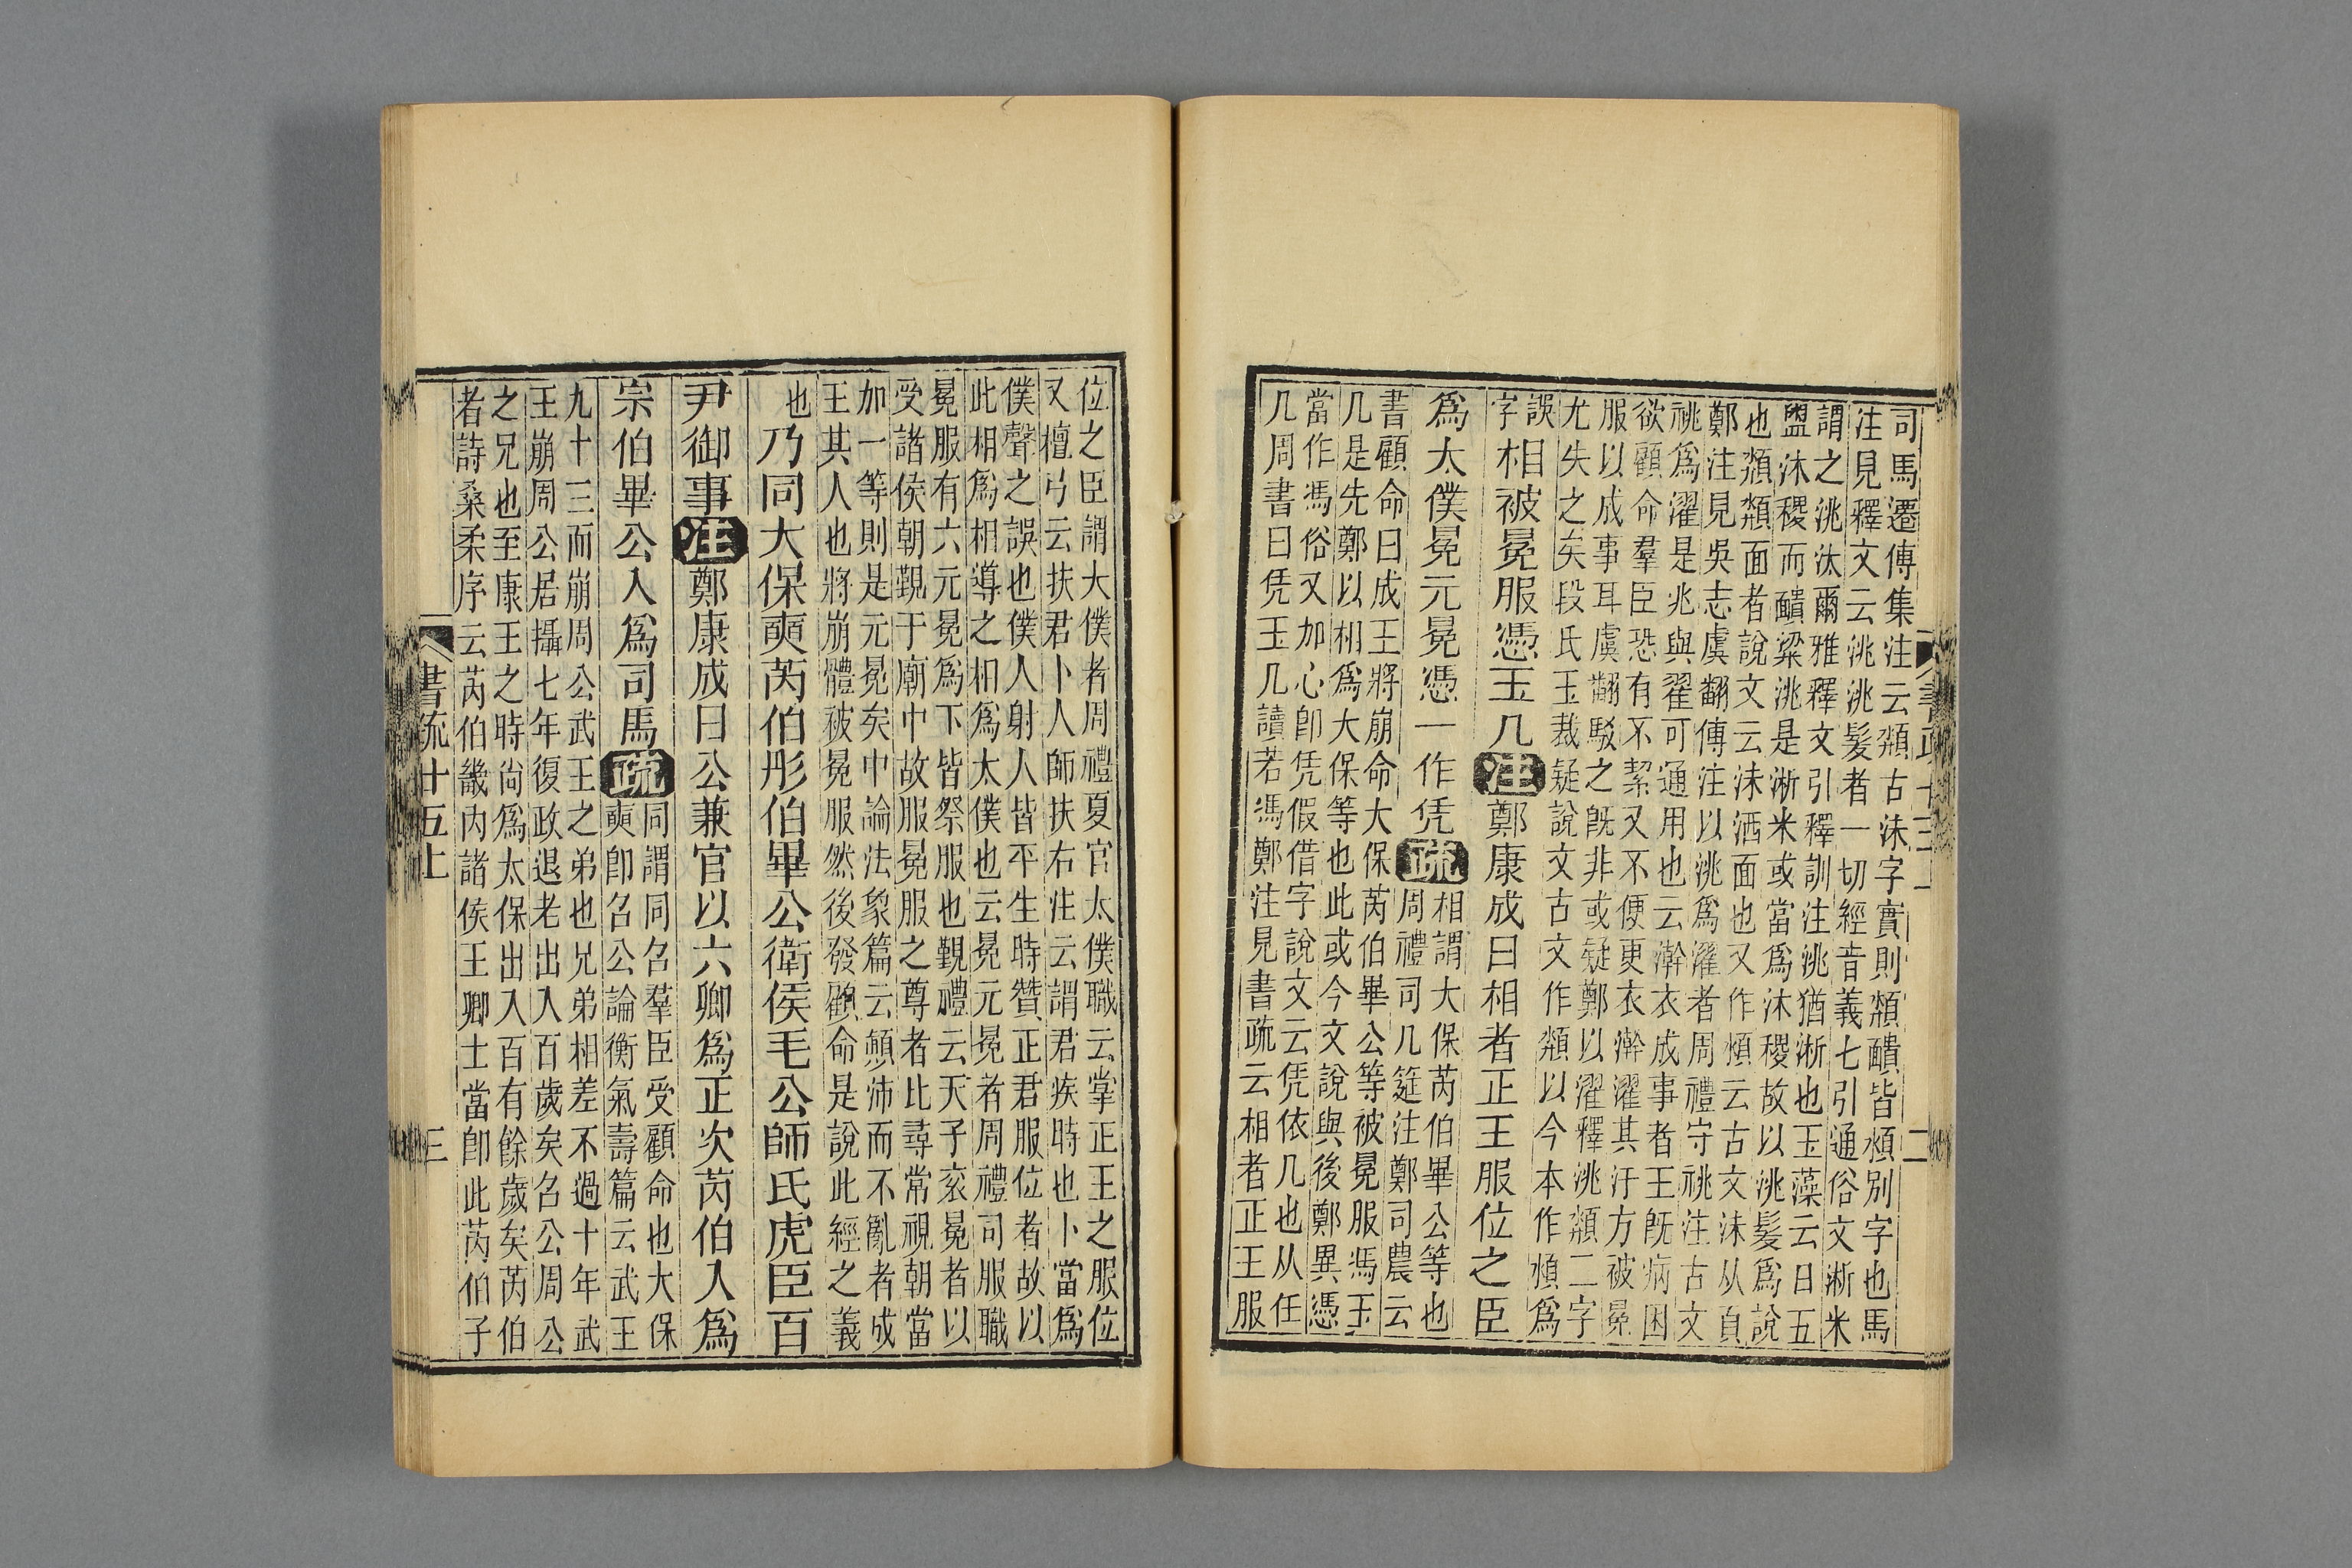 司馬遷傳集注云頮古沬字實則頮靧皆湏別字也馬
注見釋文云洮洮髮者一切經音義七引通俗文淅米
謂之洮汰爾雅釋文引釋訓注洮猶淅也玉藻云日五
盥沐稷而靧粱洮是淅米或當爲沐稷故以洮髮爲說
也頮頮面者說文云沬洒面也又作湏云古文沬从頁
鄭注見吳志虞翻傳注以洮爲濯者周禮守祧注古文
祧爲濯是兆與翟可通用也云澣衣成事者王旣病困
欲顧命羣臣恐有不絜又不便更衣澣濯其汙方被冕
服以成事耳虞翻駁之旣非或疑鄭以濯釋洮頮二字
尤失之矣段氏玉裁疑說文古文作頮以今本作湏爲
誤
字
相被冕服憑玉几注鄭康成曰相者正王服位之臣
爲太僕冕元冕憑一作凭疏
相謂大保芮伯畢公等也
周禮司几筵注鄭司農云
書顧命曰成王將崩命大保芮伯畢公等被冕服馮玉
几是先鄭以相爲大保等也此或今文說與後鄭異憑
當作馮俗又加心卽凭假借字說文云凭依几也从任
几周書曰凭玉几讀若馮鄭注見書疏云相者正王服
二
位之臣謂大僕者周禮夏官太僕職云掌正王之服位
又檀弓云扶君卜人師扶右注云謂君疾時也卜當爲
僕聲之誤也僕人射人皆平生時贊正君服位者故以
此相爲相導之相爲太僕也云冕元冕者周禮司服職
冕服有六元冕爲下皆祭服也覲禮云天子衮冕者以
受諸侯朝覲于廟中故服冕服之尊者比尋常視朝當
加一等則是元冕矣中論法象篇云顛沛而不亂者成
王其人也將崩體被冕服然後發顧命是說此經之義
也
乃同大保奭芮伯彤伯畢公衛侯毛公師氏虎臣百
尹御事注鄭康成曰公兼官以六卿爲正次芮伯入爲
宗伯畢公入爲司馬疏
同謂同召羣臣受顧命也大保
奭卽召公論衡氣壽篇云武王
九十三而崩周公武王之弟也兄弟相差不過十年武
王崩周公居攝七年復政退老出入百歲矣召公周公
之兄也至康王之時尙爲太保出入百有餘歲矣芮伯
者詩桑柔序云芮伯畿內諸侯王卿士當卽此芮伯子
書疏廿五上
三